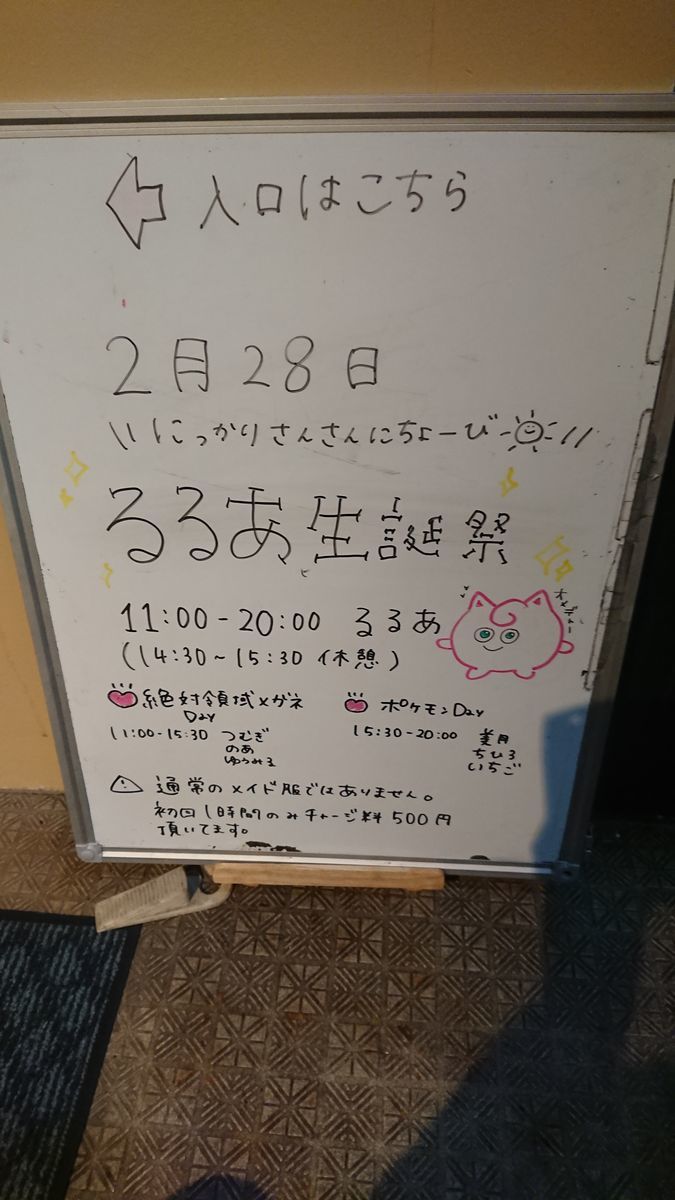 入口はこちら
2月28日
\\ にっかりさんさんにちょーび //
るるあ生誕祭
11:00-20:00 るるあ
(14:30~15:30 休憩)
絶対領域メガネ
Day
11:00-15:30 つむぎ
のあ
ゆうみる
ポケモンDay
15:30-20:00 美月
ちひろ
いちご
通常のメイド服ではありません。
初回1時間のみチャージ料500円
頂いてます。